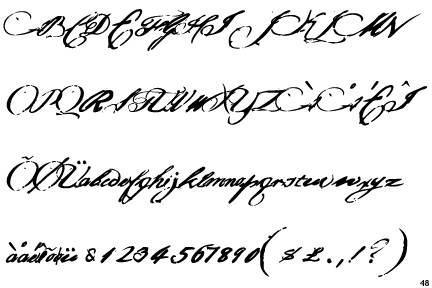 ABCDEFGHIJKLMN
OPQRSTUVWXYZÀÅÉÎ
ÕØÜabcdefghijklmnopqrstuvwxyz
àåéîõøü&1234567890($£.,!?)
48